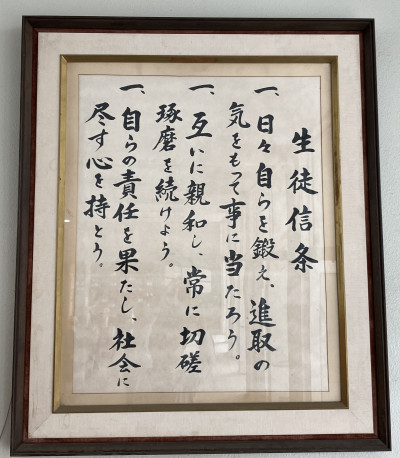 生徒信条
一、日々自らを鍛え、進取の
気をもって事に当たろう。
一、互いに親和し、常に切磋
琢磨を続けよう。
一、自らの責任を果たし、社会に
尽す心を持とう。